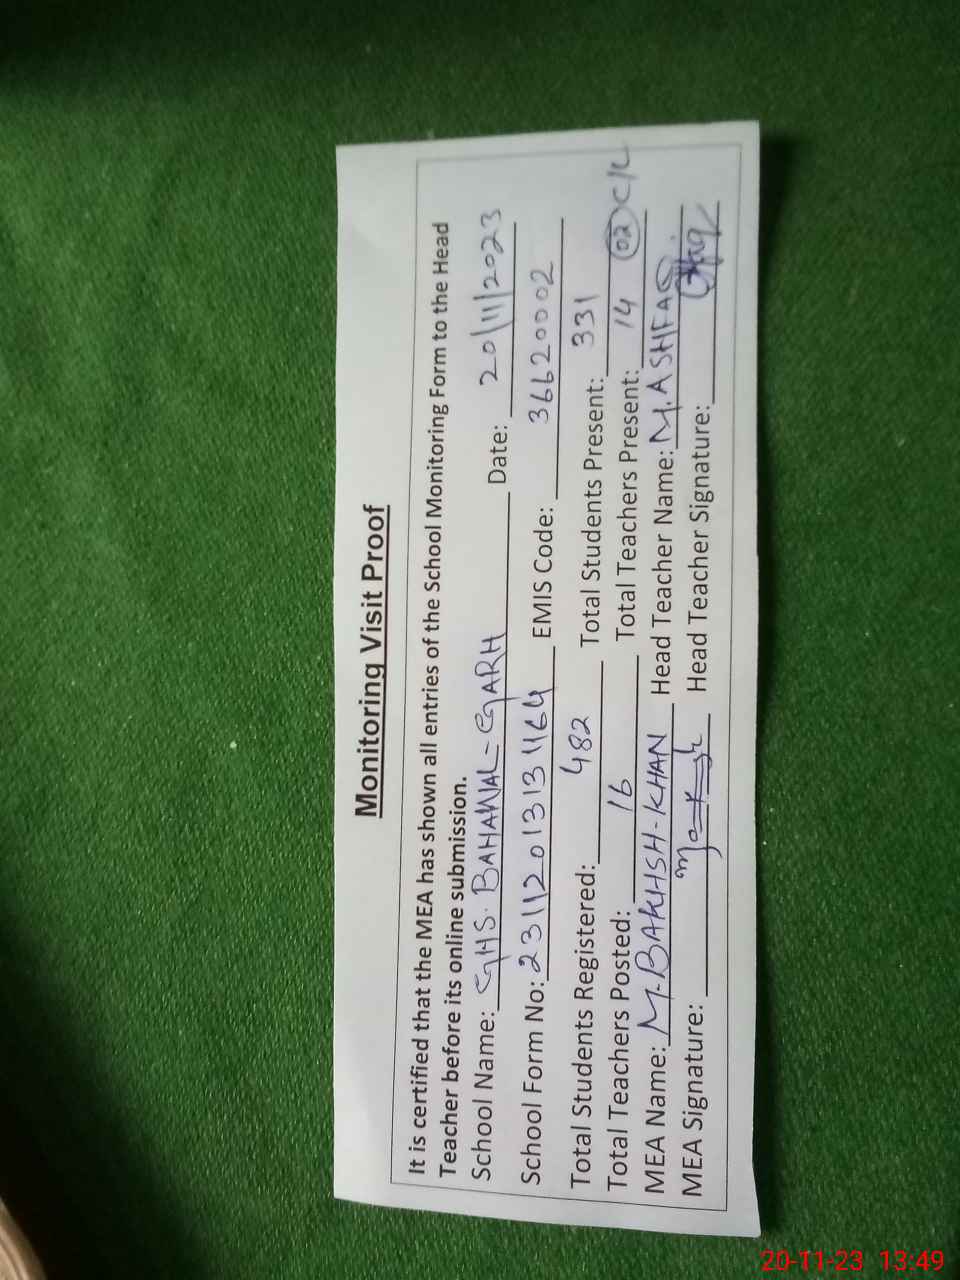 Monitoring Visit Proof
It is certified that the MEA has shown all entries of the School Monitoring Form to the Head
Teacher before its online submission.
School Name: GHS. BAHAWAL-GARH Date: 20/11/2023
School Form No: 231120131164 EMIS Code: 36620002
Total Students Registered: 482 Total Students Present: 331
Total Teachers Posted: 16 Total Teachers Present: 14 02 C/L
MEA Name: M.BAKHSH-KHAN Head Teacher Name: M.ASHFAQ
MEA Signature: Head Teacher Signature:
20-11-23 13:49